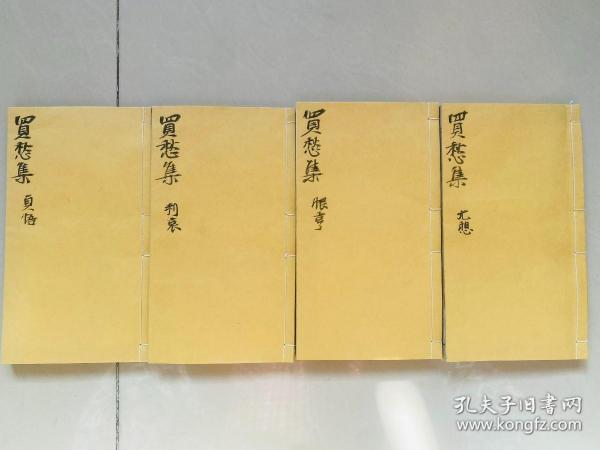 買愁集
元想
買愁集
恨亨
買愁集
利哀
買愁集
貞悟
孔夫子旧书网
www.kongfz.com